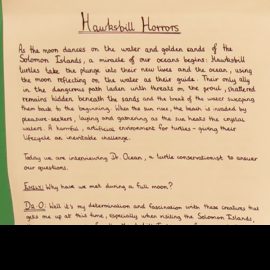 Hawksbill Horrors
As the moon dances on the water and golden sands of the
Solomon Islands, a miracle of our oceans begins. Hawksbill
turtles take the plunge into their new lives and the ocean, using
the moon reflecting on the water as their guide. Their only ally
in the dangerous path laden with threats on the prowl, shattered
remains hidden beneath the sands and the break of the water sweeping
them back to the beginning. When the sun rises, the beach is invaded by
pleasure seekers, laying and gathering as the sun heats the crystal
waters. A harmful, artificial environment for turtles - giving their
lifecycle an inevitable challenge.
Today we are interviewing Dr. Ocean, a turtle conservationist to answer
our questions.
Emily: Why have we met during a full moon?
Dr. O: Well it's my determination and fascination with these creatures that
gets me up at this time, especially when visiting the Solomon Islands,